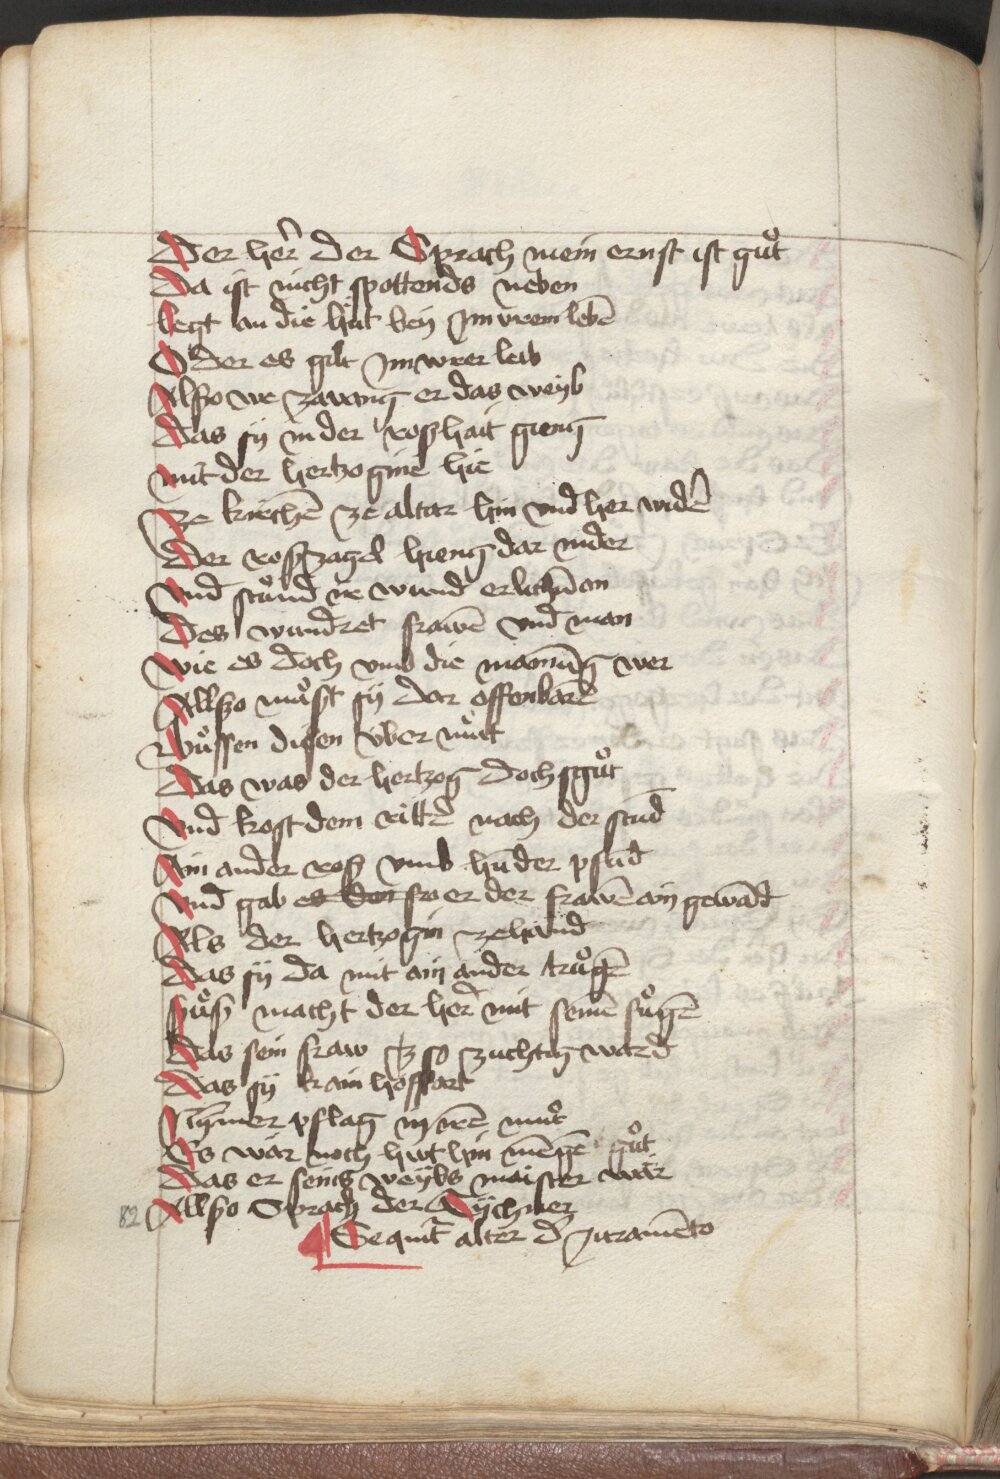 Der her̄ der Sprach mein ernst ist guͦt
Da ist nicht spottends neben
legt an die hut bey Jnwrem lebē
Oder es gilt Jnwrer leib
Allſo we zwang er das weyb
Das sy in der roſshait gieng
mit der hertzogine hie
Ze kirchē ze altar hin vnd her widē
Der roſszagel hieng dar nider
Vnd stuͦnd ir wund erlichñ an
Des wundret frawē vnd man
Wie es doch vmb die mainūg wer
Allſo muͦst sy dar offenbarē
Buͦſſen disen vber muͦt
Das was der hertzog doch sguͦt
Vnd kost dem rittē nach der stūd
Ain ander roſs vmb hūder pfūd
Vnd gab er der frawē ain gewād
Als der hertzogin zehānd
Das sy da mit ain ander truͦgē
Suͦſs macht der her̄ mit seinē fuͦgē
Das sein fraw so zuchtig ward
Das sy kain hoffart
Nȳmer pflag in irē muͦt
Es wär noch hut hin mēgē guͦt
Das er seins weybs maister wär
82 Allſo Sprach der Tychner
Sequit᷑ alter đ Juramēto